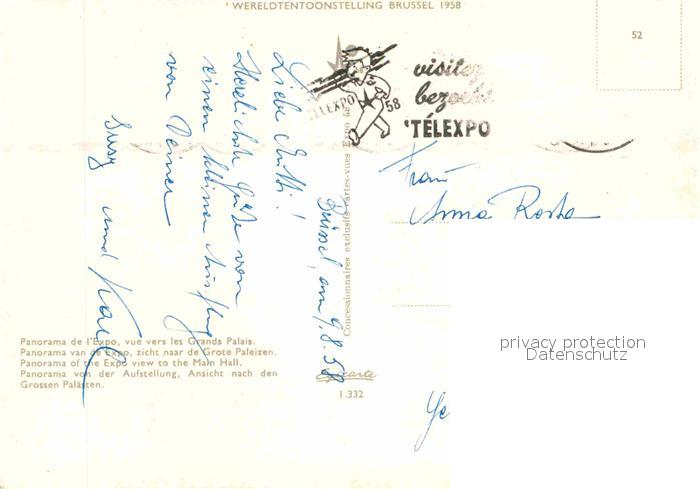 * WERELDTENTOONSTELLING BRUSSEL 1958
52
TELEXPO 58
visitez
bezoekt
'TÉLEXPO
Brüssel, am 9.8.58
Liebe Mutti!
Herzlichste Grüße von
einem kleinen Ausflug
von Deiner
und Karl
Frau
Anna Rosta
Concessionnaires exclusifs cartes-vues Expo 58
Panorama de l'Expo, vue vers les Grands Palais.
Panorama van de Expo, zicht naar de Grote Paleizen.
Panorama of the Expo view to the Main Hall.
Panorama von der Aufstellung, Ansicht nach den
Grossen Palästen.
1.332
privacy protection
Datenschutz